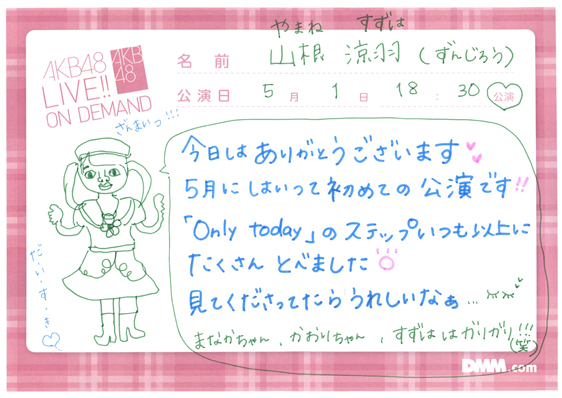 AKB48
LIVE!!
ON DEMAND
AKB
48
やまね すずは
名前 山根 涼羽 (ずんじろう)
公演日 5月 1日 18:30 公演
ざんまいっ!!!
今日は ありがとうございます
5月にはいって初めての 公演です!!
「Only today」の ステップいつも以上に
たくさん とべました
見てくださってたら うれしいなぁ...
まなかちゃん、かおりちゃん、すずは はガリガリ!!!
(笑)
だ・い・す・き
DMM.com